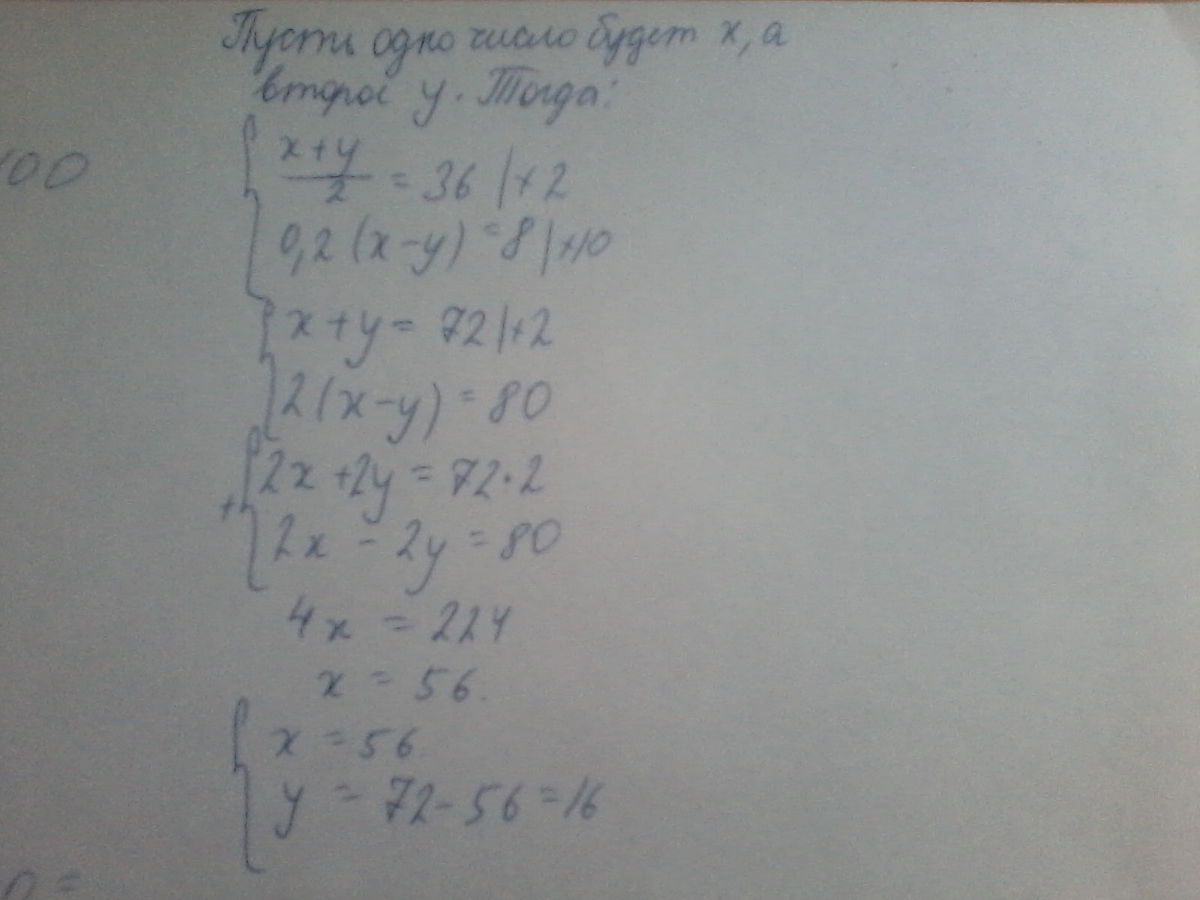 Пусть одно число будет x, а
второе y. Тогда:
00
{ (x+y)/2 = 36 |×2
0,2(x-y) = 8 |×10
{ x+y = 72 |×2
2(x-y) = 80
+ { 2x+2y = 72·2
2x - 2y = 80
4x = 224
x = 56.
{ x = 56
y = 72-56 = 16
0 =